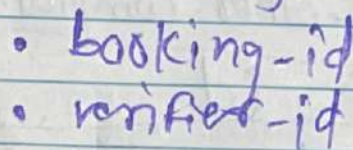 • booking-id
• verifier-id